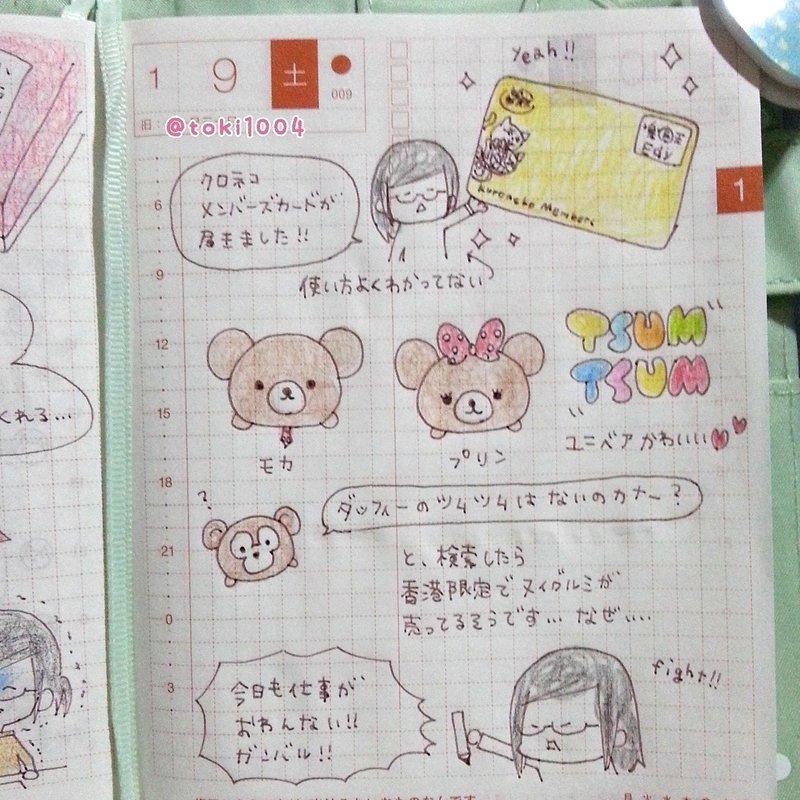 1 9 土
009
@toki1004
Yeah!!
クロネコ
メンバーズカードが
届きました!!
Edy
Kuroneko Members
使い方よくわかってない
1
6
9
12
15
18
21
0
3
TSUM
TSUM
ユニベアかわいい
モカ
プリン
くれる…
?
ダッフィーのツムツムはないのカナー?
と、検索したら
香港限定でヌイグルミが
売ってるそうです… なぜ…
今日も仕事が
おわんない!!
ガンバル!!
fight!!